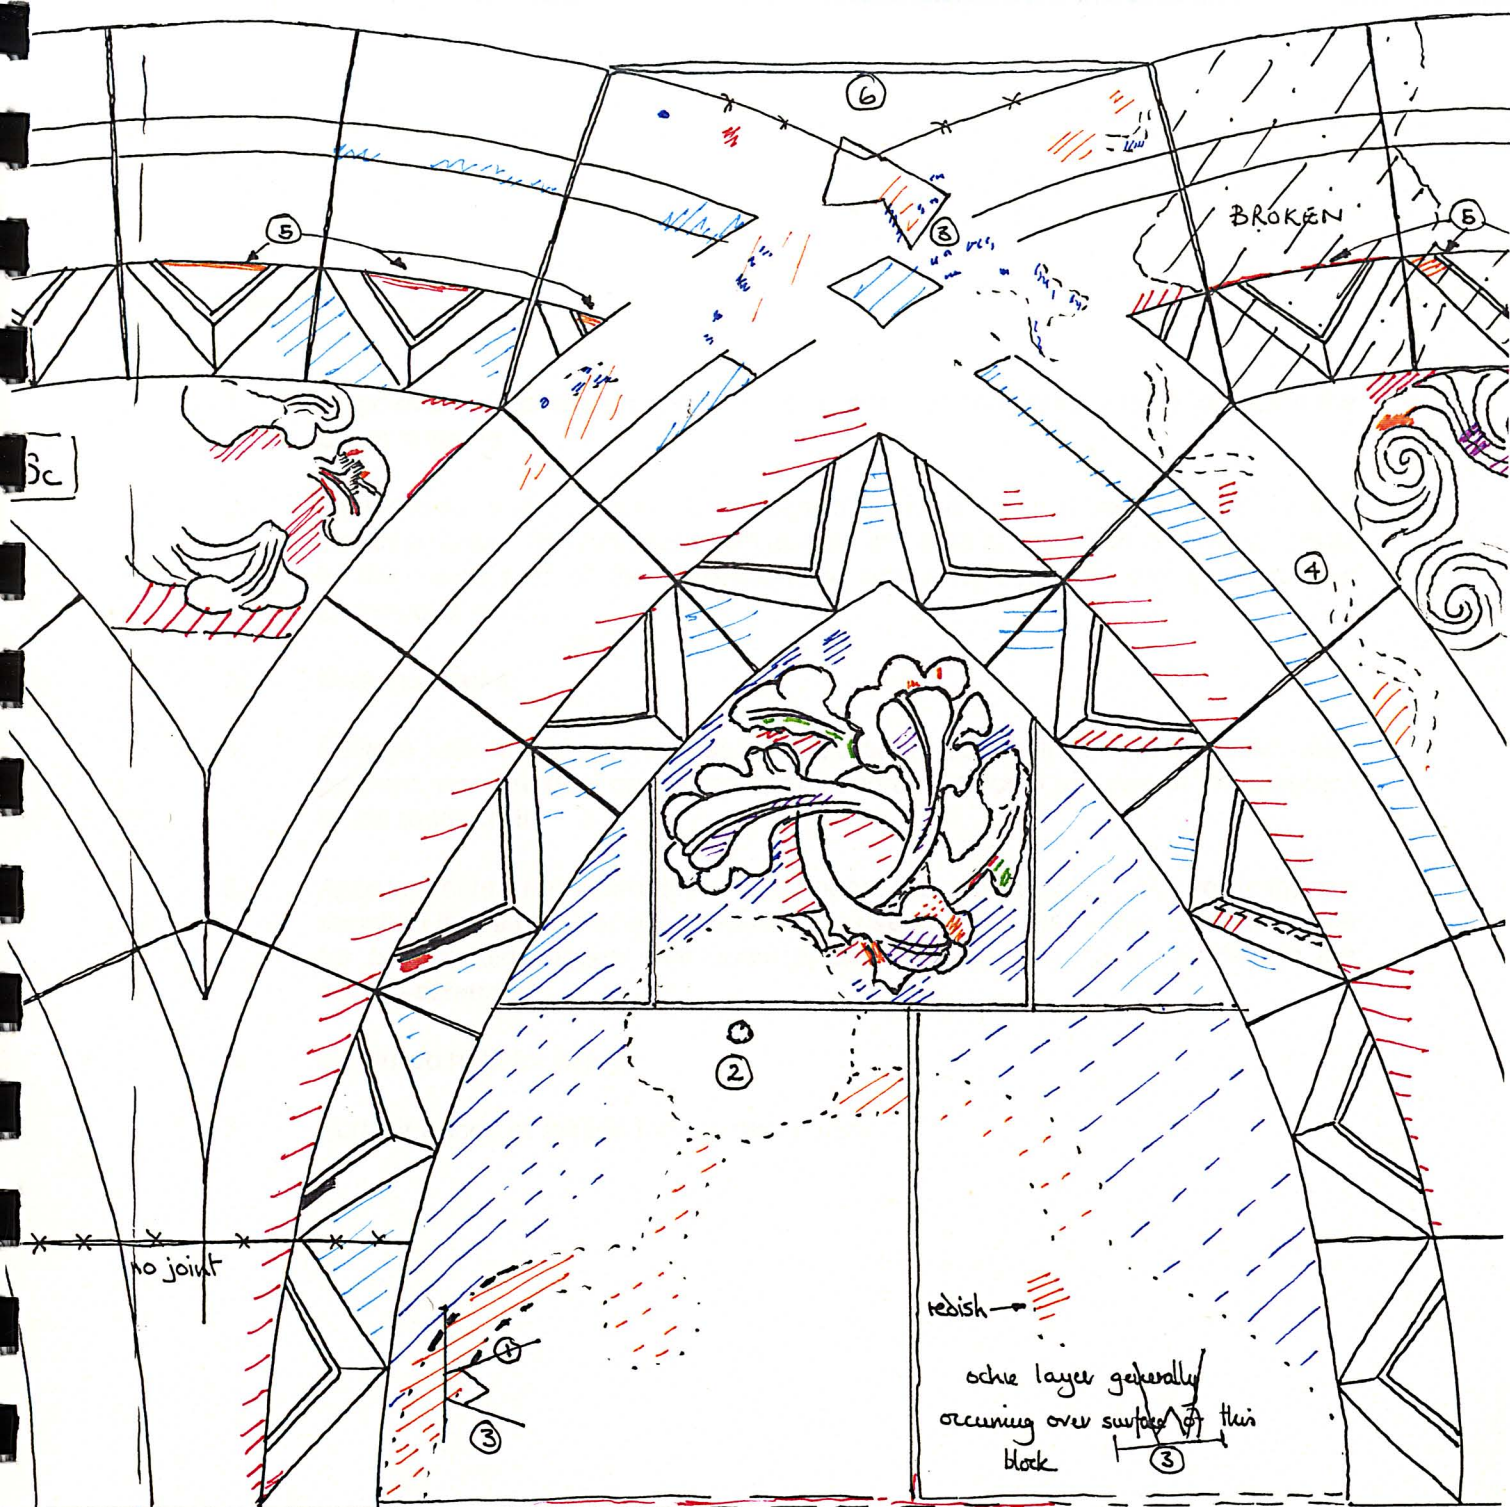 6
5
BROKEN
5
3
3c
4
2
no joint
redish
1
ochre layer generally
occurring over surface of this
block
3
3